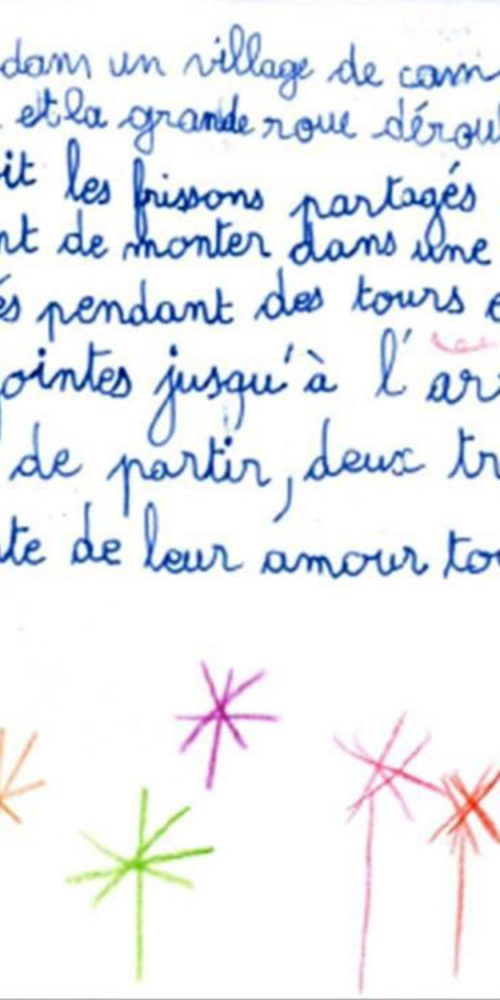 dans un village de cam
et la grande roue dérou
it les frissons partagés
nt de monter dans une
és pendant des tours e
ointes jusqu'à l'ar
de partir, deux tr
te de leur amour tou